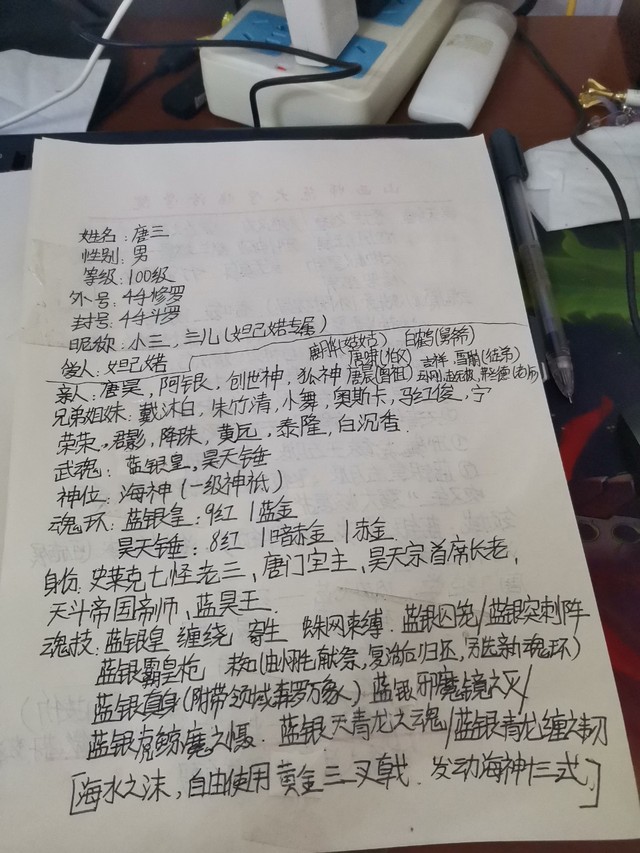 姓名：唐三
性别：男
等级：100级
外号：千手修罗
封号：千手斗罗
昵称：小三，三儿（妲己婼专属）
爱人：妲己婼
(姑姑) 白鹤(舅爷)
亲人：唐昊，阿银，创世神，狐神 唐晨(曾祖)
兄弟姐妹：戴沐白，朱竹清，小舞，奥斯卡，马红俊，宁
荣荣，君影，降珠，黄远，泰隆，白沉香．
武魂：蓝银皇，昊天锤
神位：海神（一级神祇）
魂环：蓝银皇：9红 1蓝金
昊天锤：8红 1暗赤金 1赤金
身份：史莱克七怪老三，唐门宗主，昊天宗首席长老，
天斗帝国帝师，蓝昊王．
魂技：蓝银皇 缠绕 寄生 蛛网束缚．蓝银囚笼/蓝银突刺阵
蓝银霸皇枪 献祭，复活后归还，魂环）
蓝银真身（附带领域森罗万象）蓝银邪魔镜之灭/
蓝银虎鲸魔之慑．蓝银天青龙之魂/蓝银青龙缠之韧
[海水之沫，自由使用黄金三叉戟．发动海神十三式．]